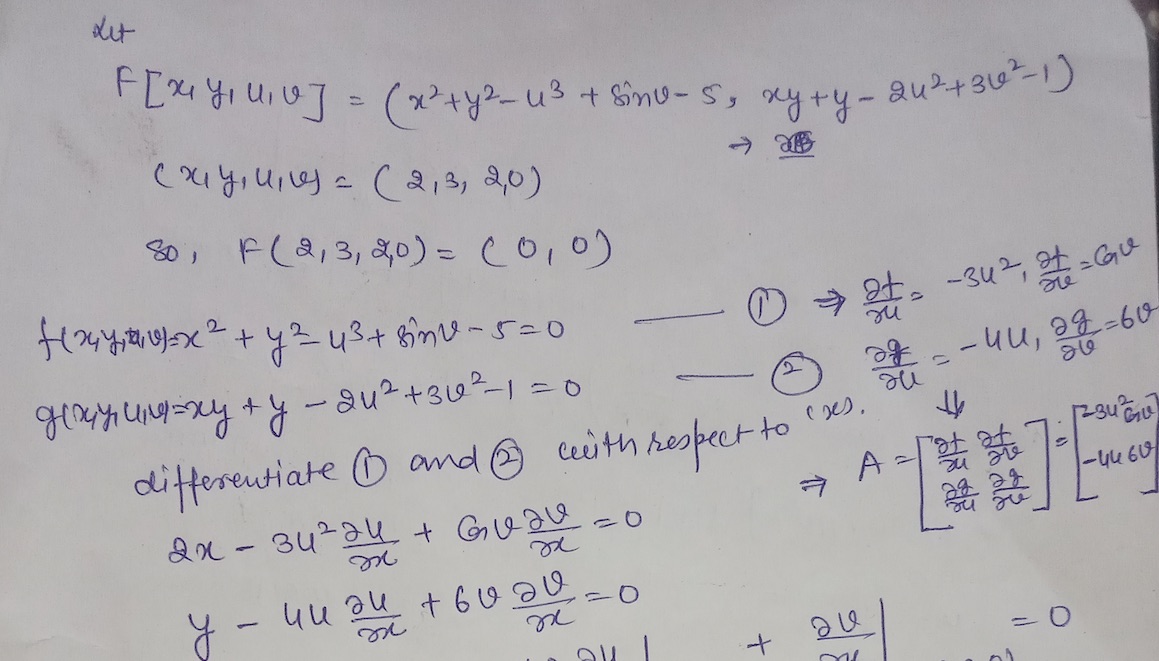 Let
F[x, y, u, v] = (x² + y² - u³ + sinv - 5, xy + y - 2u² + 3v² - 1)
→
(x, y, u, v) = (2, 3, 2, 0)
so, F(2, 3, 2, 0) = (0, 0)
f(x, y, u, v) = x² + y² - u³ + sinv - 5 = 0 —— ① ⇒ ∂f/∂u = -3u², ∂f/∂v = Cosv
g(x, y, u, v) = xy + y - 2u² + 3v² - 1 = 0 —— ② ∂g/∂u = -4u, ∂g/∂v = 6v
⇓
differentiate ① and ② with respect to (x).
⇒ A = [∂f/∂u ∂f/∂v; ∂g/∂u ∂g/∂v] = [-3u² Cosv; -4u 6v]
2x - 3u² ∂u/∂x + Cosv ∂v/∂x = 0
y - 4u ∂u/∂x + 6v ∂v/∂x = 0
∂u | + ∂v | = 0